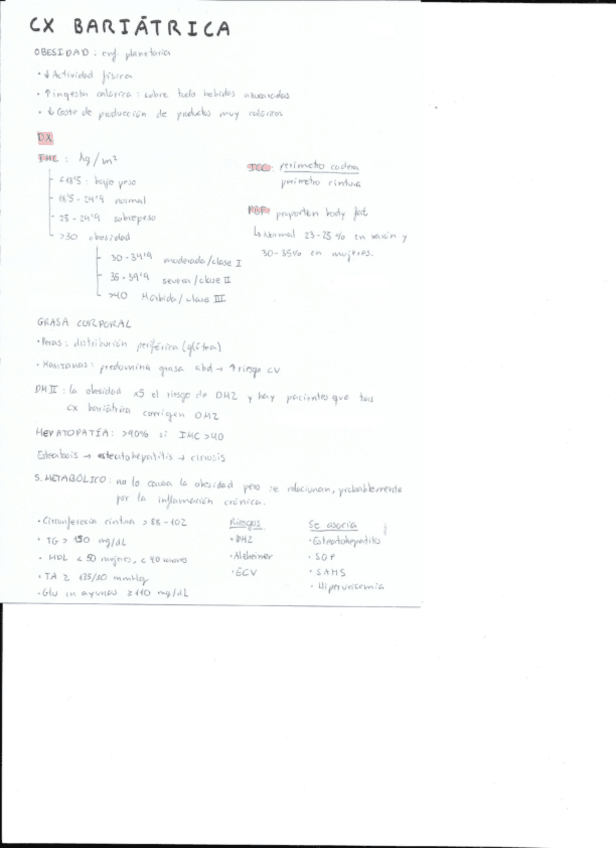 CX BARIÁTRICA
OBESIDAD : enf. planetaria
· ↓ Actividad física
· ↑ ingesta calórica : sobre todo bebidas azucaradas
· ↓ Coste de producción de productos muy calóricos
DX
IMC : kg/m²
<18'5 : bajo peso
18'5 - 24'9 normal
25 - 29'9 sobrepeso
>30 obesidad
30 - 34'9 moderada/clase I
35 - 39'9 severa/clase II
>40 Mórbida/clase III
ICC : perímetro cadera
perímetro cintura
PBF : proporten body fat
↳ Normal 23-25 % en varón y
30-35% en mujeres.
GRASA CORPORAL
· Peras : distribución periférica (glútea)
· Manzanas : predomina grasa abd → ↑ riesgo CV
DM II : la obesidad x5 el riesgo de DM2 y hay pacientes que tras
cx bariátrica corrigen DM2
HEPATOPATÍA : >90% si IMC >40
Esteatosis → esteatohepatitis → cirrosis
S. METABÓLICO : no lo causa la obesidad pero se relacionan, probablemente
por la inflamación crónica.
· Circunferencia cintura > 88 - 102
· TG > 150 mg/dL
· HDL < 50 mujeres, < 40 varones
· TA ≥ 135/80 mmHg
· Glu en ayunas ≥ 110 mg/dL
Riesgos
· DM2
· Alzheimer
· ECV
Se asocia
· Esteatohepatitis
· SOP
· SAHS
· Hiperuricemia